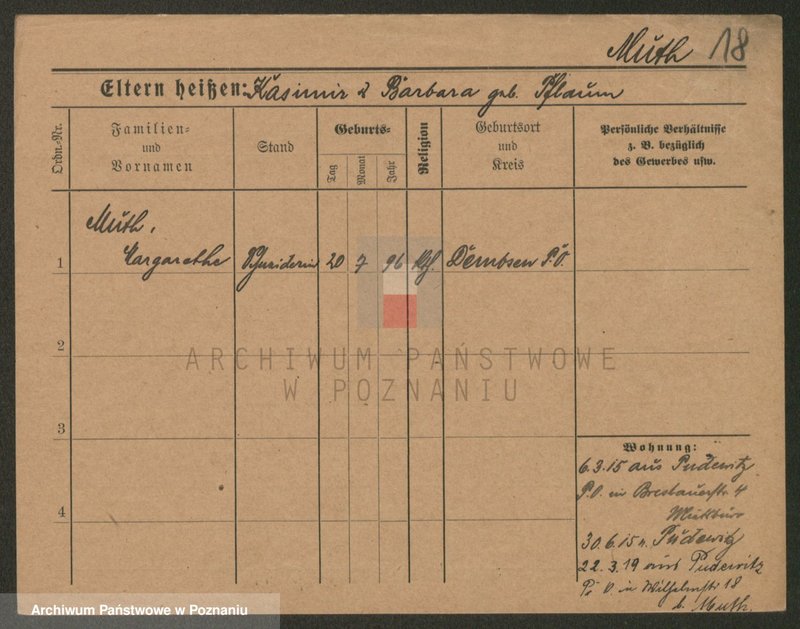 Muth 18
Eltern heißen: Kasimir & Barbara geb. Pflaum
Ordn.-Nr.
Familien-
und
Vornamen
Stand
Geburts-
Tag
Monat
Jahr
Religion
Geburtsort
und
Kreis
Persönliche Verhältnisse
z. B. bezüglich
des Gewerbes usw.
Muth,
1 Margarethe 20 7 96 Kth. Dembsen P.O.
2
3
4
ARCHIWUM PAŃSTWOWE
W POZNANIU
Wohnung:
6.3.15 aus Pudewitz
P.O. in Breslauerstr. 4
30.6.15 n. Pudewitz
22.3.19 aus Pudewitz
P. O. in Wilhelmstr. 18
b. Muth.
Archiwum Państwowe w Poznaniu